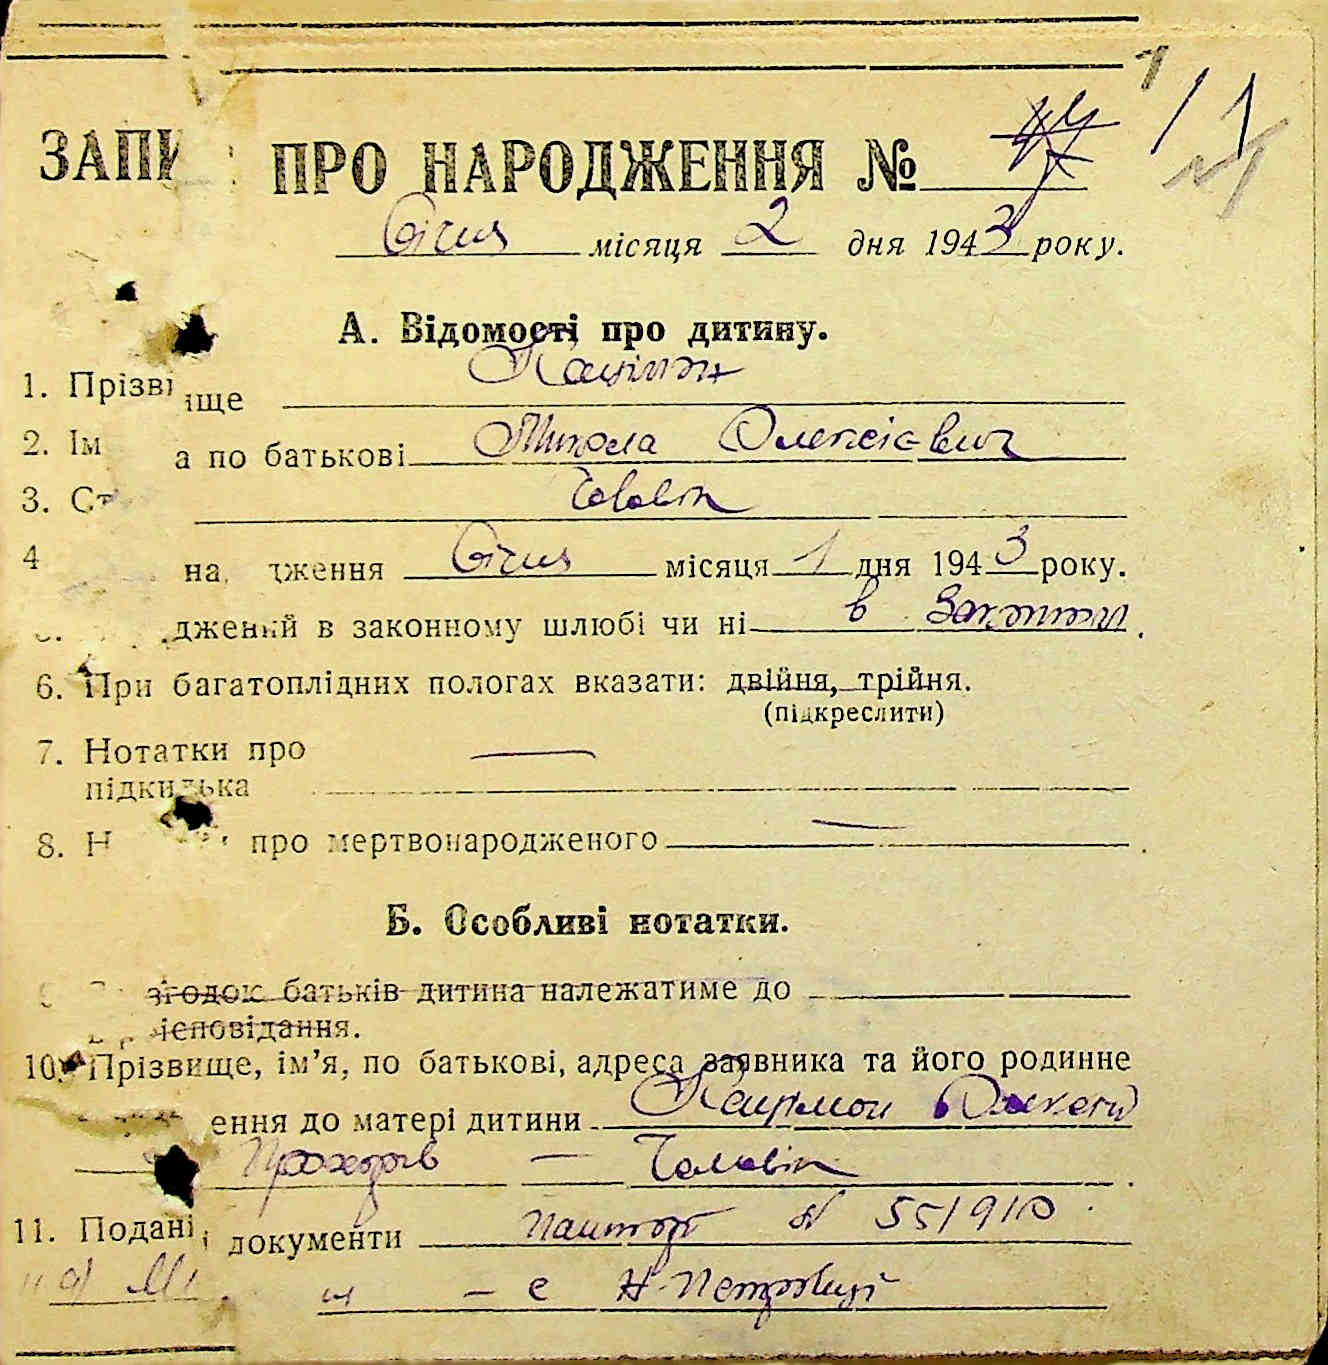 1/1
ЗАПИ ПРО НАРОДЖЕННЯ №
Січня місяця 2 дня 1943 року.
А. Відомості про дитину.
1. Прізвище
2. Ім а по батькові Микола Олексієвич
3. Ст Чоловік
4 на дження Січня місяця 1 дня 1943 року.
дженний в законному шлюбі чи ні в законном
6. При багатоплідних пологах вказати: двійня, трійня.
(підкреслити)
7. Нотатки про —
підкидька
8. Н про мертвонародженого —
Б. Особливі нотатки.
згодою батьків дитина належатиме до
ієповідання.
10. Прізвище, ім’я, по батькові, адреса заявника та його родинне
ення до матері дитини Олексій
— Чоловік
11. Подані документи паспорт № 551910
— с Н-Петровці